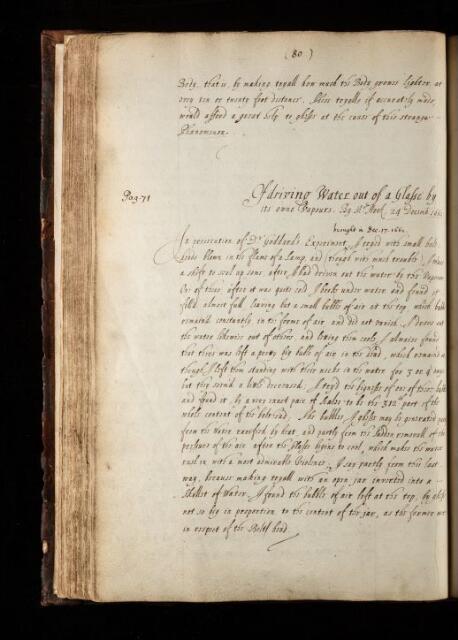 (80)
Body, that is, by making tryall how much the Body growes lighter at
every ten or twenty foot distance. These tryalls if accurately made,
would afford a great help to ghesse at the cause of this strange
Phænomenon.
Pag. 71
Of driving Water out of a Glasse by
its owne Vapours. By Mr. Hook. 24 Decemb. 166
brought in Dec. 17. 1662
In prosecution of Dr. Goddard's Experiment, I tryed with small bolt
heads blown in the flame of a Lamp, and (though with much trouble) I made
a shift to seal up some, after I had driven out the water by the Vapours
One of these, after it was quite cold I broke under water and found it
fill'd almost full, leaving but a small bubble of air at the top, which
remain'd constantly in the forme of air and did not vanish. I drove out
the water likewise out of others, and letting them coole, I alwaies found
that there was left a pretty big bubble of air in the head, which remained
though I left them standing with their necks in the water for 3 or 4 days
but they seem'd a little decreased. I tryed the bignesse of one of these
and found it, by a very exact pair of Scales to be the part of the
whole content of the bolthead. The bubbles I ghesse may be generated
from the Water rarified by heat, and partly from the sudden removall of the
pressure of the air after the glasse begins to cool, which makes the water
rush in with a most admirable Violence, I say partly from this last
way, because making tryall with an open jar inverted into a
Skellet of Water I found the bubble of air left at the top, by
not so big in proportion to the content of the jar, as the former
in respect of the Bolt head.